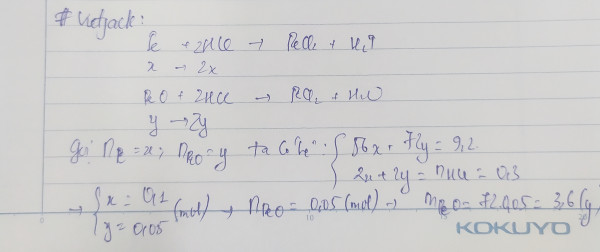 # Vietjack:
Fe + 2HCl → FeCl₂ + H₂↑
x → 2x
FeO + 2HCl → FeCl₂ + H₂O
y → 2y
gọi n_Fe = x; n_FeO = y ta có hệ: { 56x + 72y = 9,2
2x + 2y = n_HCl = 0,3
→ { x = 0,1
y = 0,05 (mol) → n_FeO = 0,05 (mol) → m_FeO = 72.0,05 = 3,6 (g)
KOKUYO